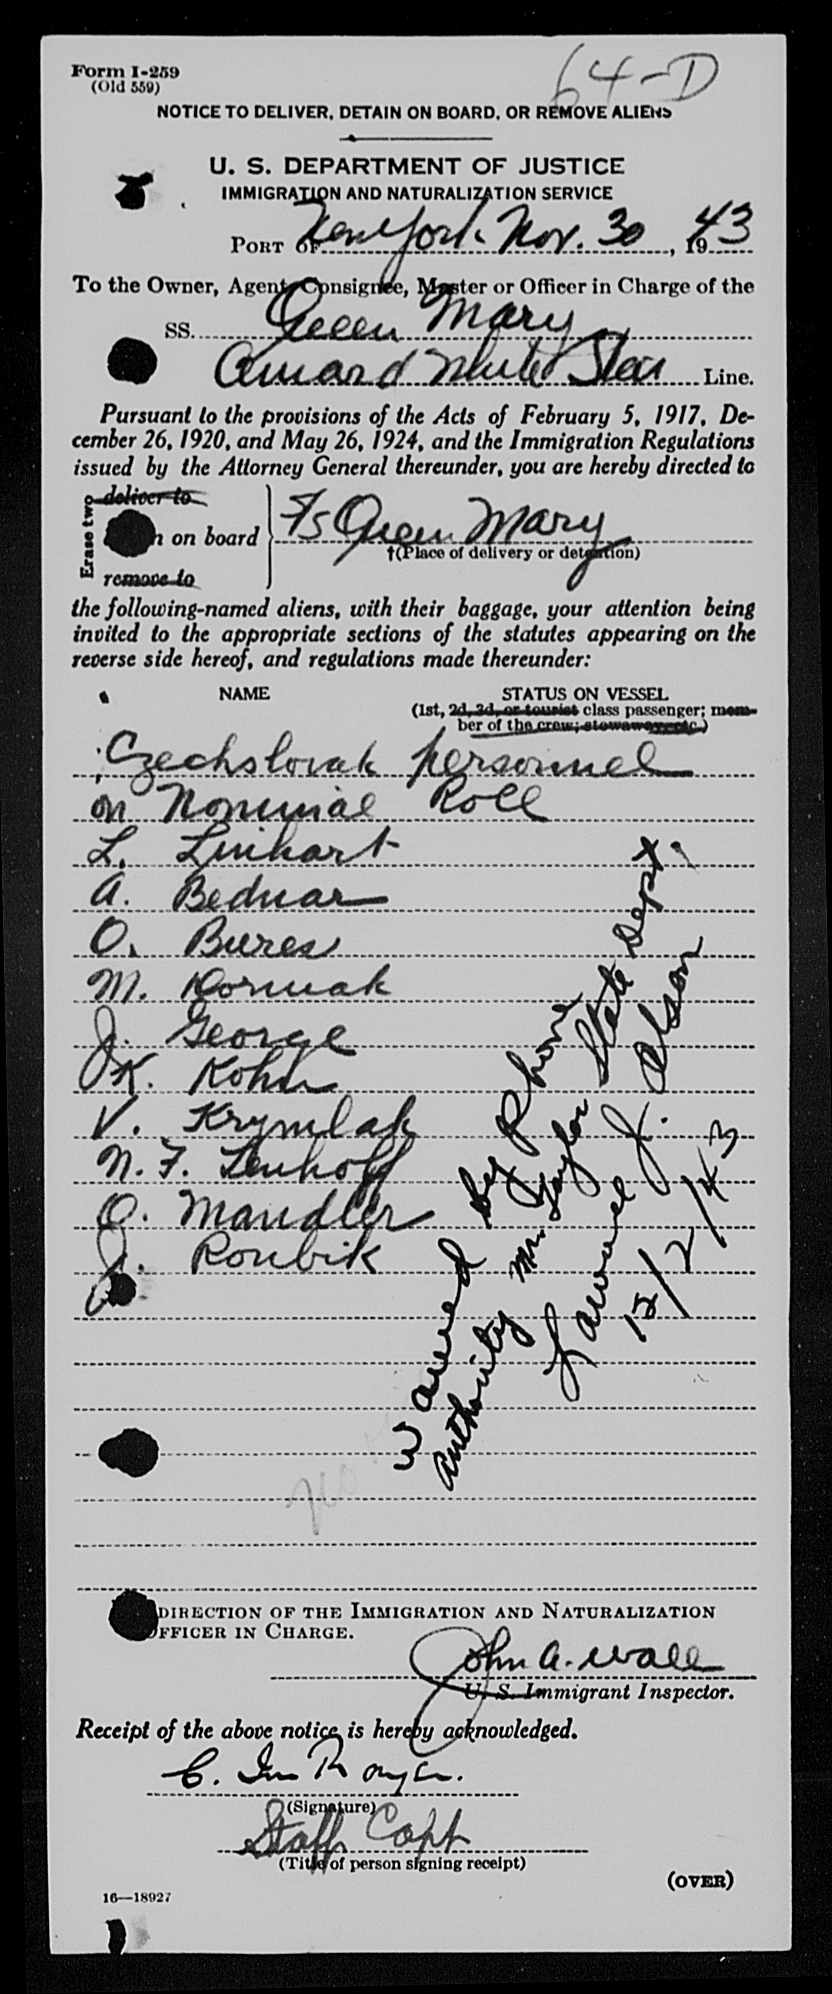 Form I-259
(Old 559)
64-D
NOTICE TO DELIVER, DETAIN ON BOARD, OR REMOVE ALIENS
U. S. DEPARTMENT OF JUSTICE
IMMIGRATION AND NATURALIZATION SERVICE
PORT OF New York Nov. 30, 1943
To the Owner, Agent, Consignee, Master or Officer in Charge of the
SS. Queen Mary
Cunard White Star Line.
Pursuant to the provisions of the Acts of February 5, 1917, De-
cember 26, 1920, and May 26, 1924, and the Immigration Regulations
issued by the Attorney General thereunder, you are hereby directed to
Erase two
deliver to
n on board
remove to
S Queen Mary
†(Place of delivery or detention)
the following-named aliens, with their baggage, your attention being
invited to the appropriate sections of the statutes appearing on the
reverse side hereof, and regulations made thereunder:
NAME STATUS ON VESSEL
(1st, 2d, 3d, or tourist class passenger; mem-
ber of the crew; stowaway, etc.)
Czechslovak personnel
on Nominal Roll
L. Linhart
A. Bednar
O. Bures
M. Dormak
J. George
K. Kohn
V. Krymlak
N. F. Lenhoff
O. Mandler
J. Roubik
Waived by Phone
Authority Mr. Taylor State Dept.
Lawrence J. Olson
12/2/43
DIRECTION OF THE IMMIGRATION AND NATURALIZATION
OFFICER IN CHARGE.
John A. Wall
U. S. Immigrant Inspector.
Receipt of the above notice is hereby acknowledged.
(Signature)
Staff Capt
(Title of person signing receipt)
(OVER)
16—18927